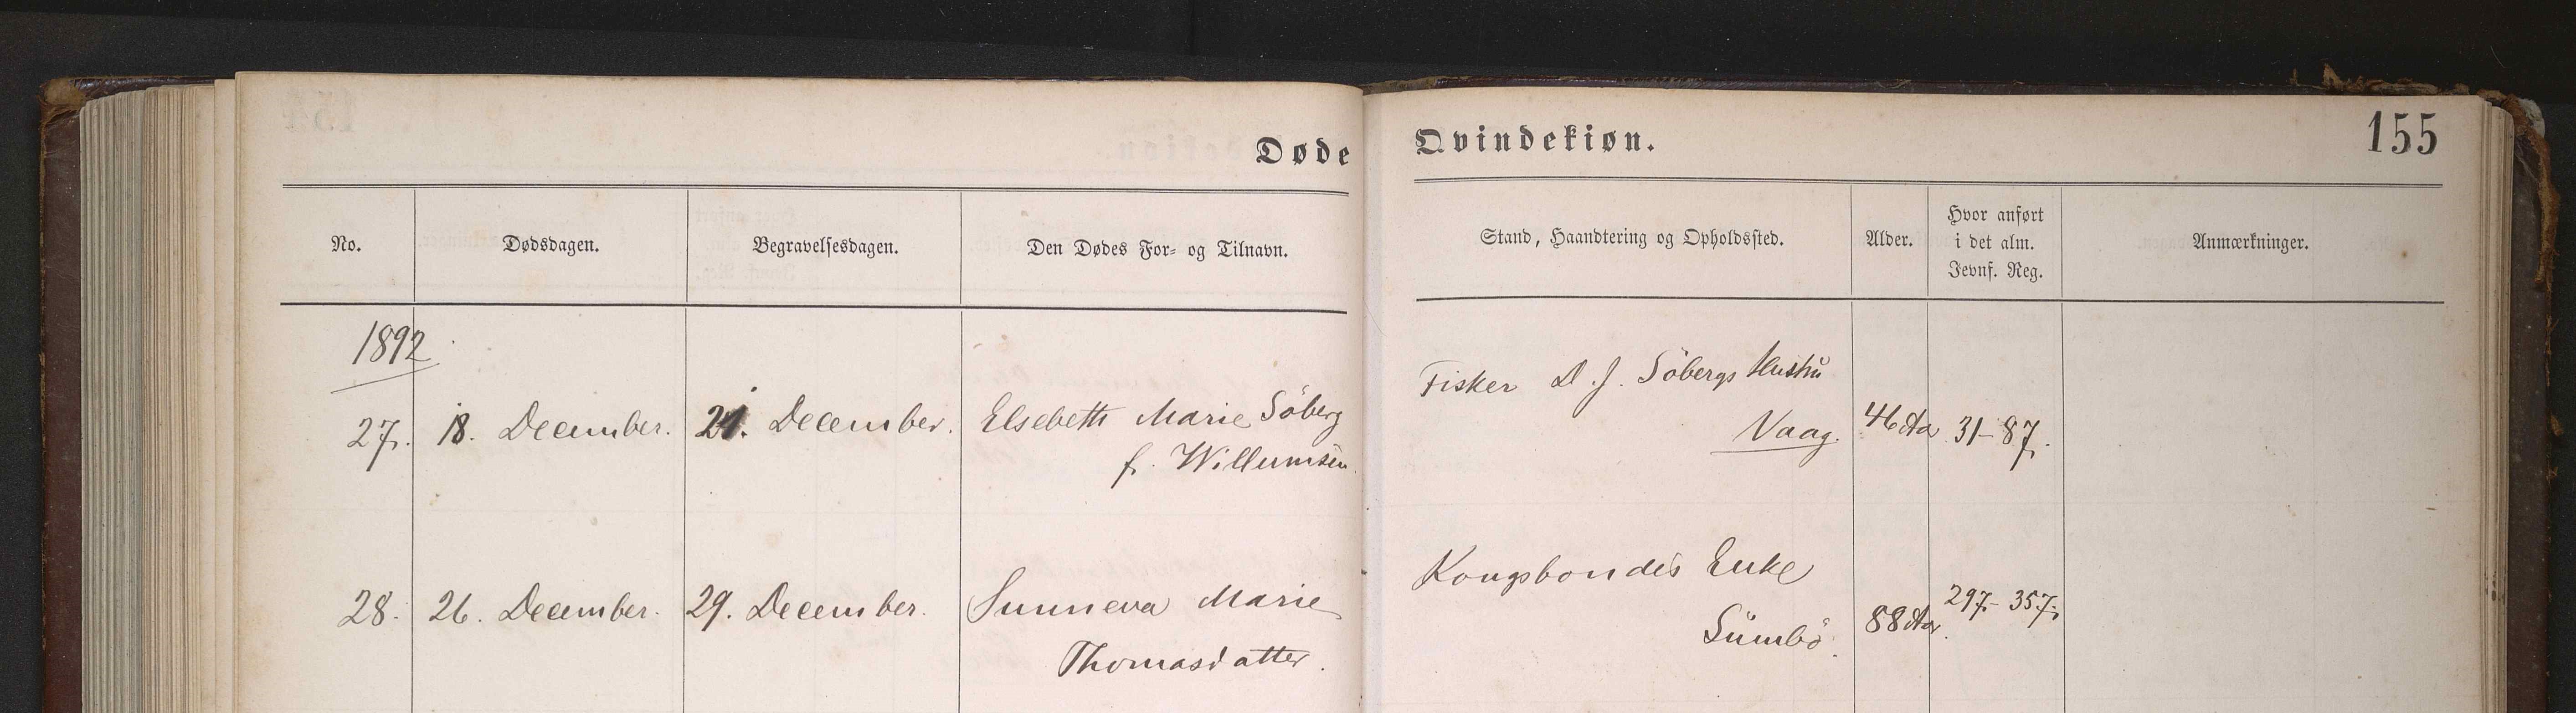 Døde
Qvindekiøn.
155
No.
Dødsdagen.
Begravelsesdagen.
Den Dødes For- og Tilnavn.
Stand, Haandtering og Opholdssted.
Alder.
Hvor anført
i det alm.
Jevnf. Reg.
Anmærkninger.
1892
27.
18. December.
21. December.
Elsebeth Marie Söberg
f. Willumsen.
Fisker D. J. Söbergs Hustru
Vaag.
46 Aar
31-87.
28.
26. December.
29. December.
Sunneva Marie
Thomasdatter.
Kongsbondes Enke
Sümbö.
88 Aar.
297.-357.